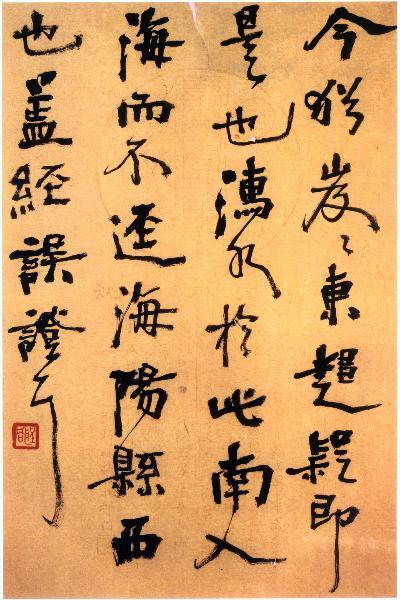 今猶岌々東趨疑即
是也濡水於此南入
海而不逕海陽縣西
也蓋經誤證耳